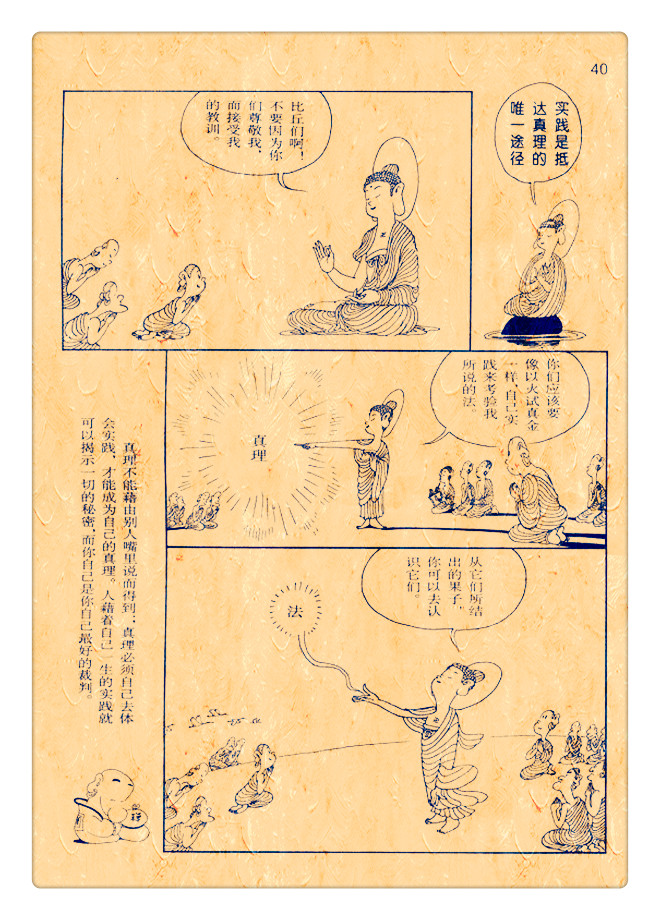 40
实践是抵
达真理的
唯一途径
比丘们啊！
不要因为你
们尊敬我，
而接受我
的教训。
你们应该要
像以火试真金
一样，自己实
践来考验我
所说的法。
真理
从它们所结
出的果子，
你可以去认
识它们。
法
真理不能藉由别人嘴里说而得到；真理必须自己去体
会实践，才能成为自己的真理。人藉着自己一生的实践就
可以揭示一切的秘密，而你自己是你自己最好的裁判。
禅